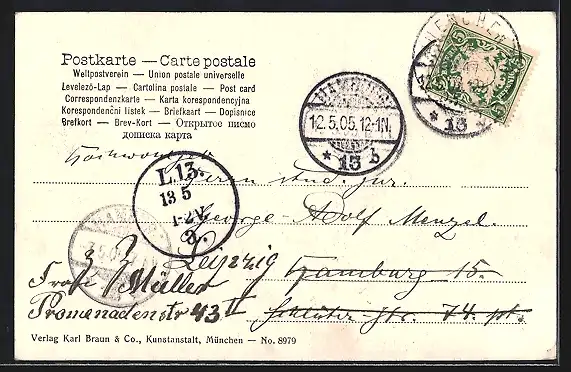 Postkarte — Carte postale
Weltpostverein — Union postale universelle
Levelező-Lap — Cartolina postale — Post card
Correspondenzkarte — Karta korespondencyjna
Korespondenční listek — Briefkaart — Dopisnice
Brefkort — Brev-Kort — Открытое письмо
дописна карта
MÜNCHEN
HAMBURG
12.5.05.12-1N.
* 13 b
L.13.
13 5
1-2V.
a.
Herrn stud. jur.
George-Adolf Menzel.
Leipzig Hamburg 15.
Frau Müller
Promenadenstr 43 II Schlüter Str. 74 pt.
Verlag Karl Braun & Co., Kunstanstalt, München — No. 8979